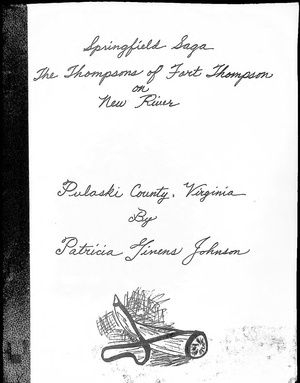 Springfield Saga
The Thompsons of Fort Thompson
on
New River
Pulaski County, Virginia
By
Patricia Givens Johnson